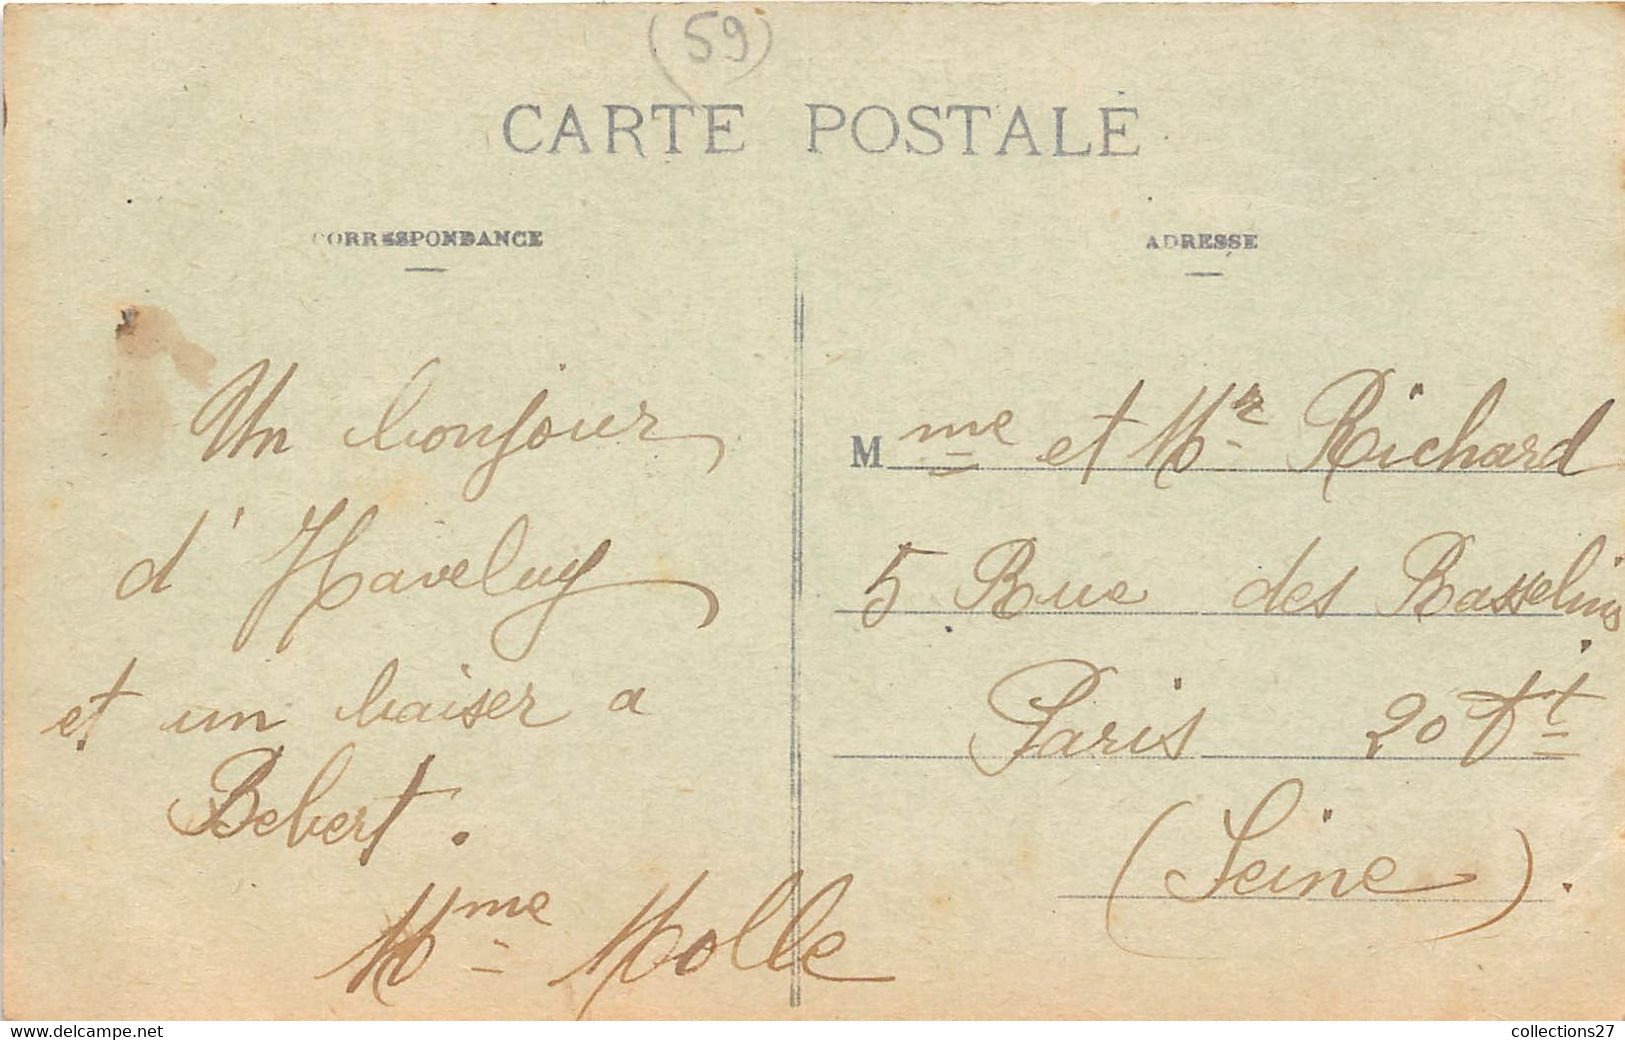 (59)
CARTE POSTALE
CORRESPONDANCE
ADRESSE
Un bonjour
d'Haveluy
et un baiser a
Bebert.
Mme Molle
Mme et Mr Richard
5 Rue des Rasselins
Paris 20
(Seine).
www.delcampe.net
collections27